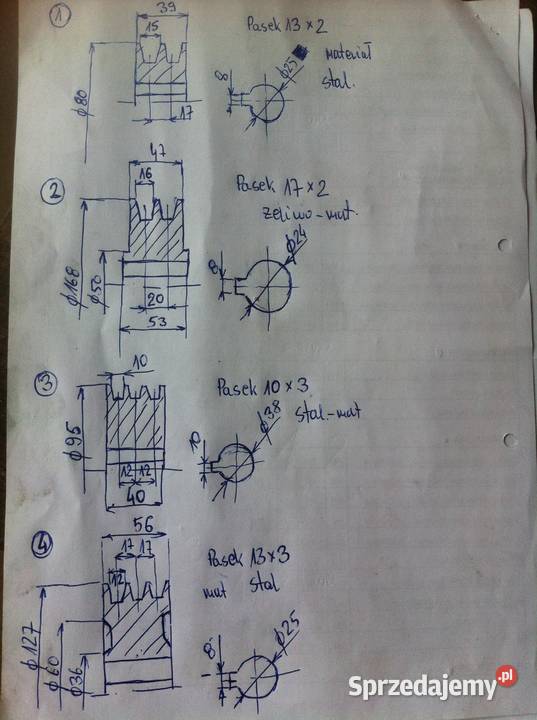 1
39
15
Pasek 13 x 2
materiał
stal.
ϕ80
8
ϕ25
17
2
47
16
Pasek 17 x 2
żeliwo-mat.
ϕ168
ϕ50
8
ϕ24
20
53
3
10
Pasek 10 x 3
stal-mat
ϕ95
10
ϕ38
12 12
40
4
56
17 17
12
Pasek 13 x 3
mat stal
ϕ127
ϕ60
ϕ36
8
ϕ25
Sprzedajemy.pl